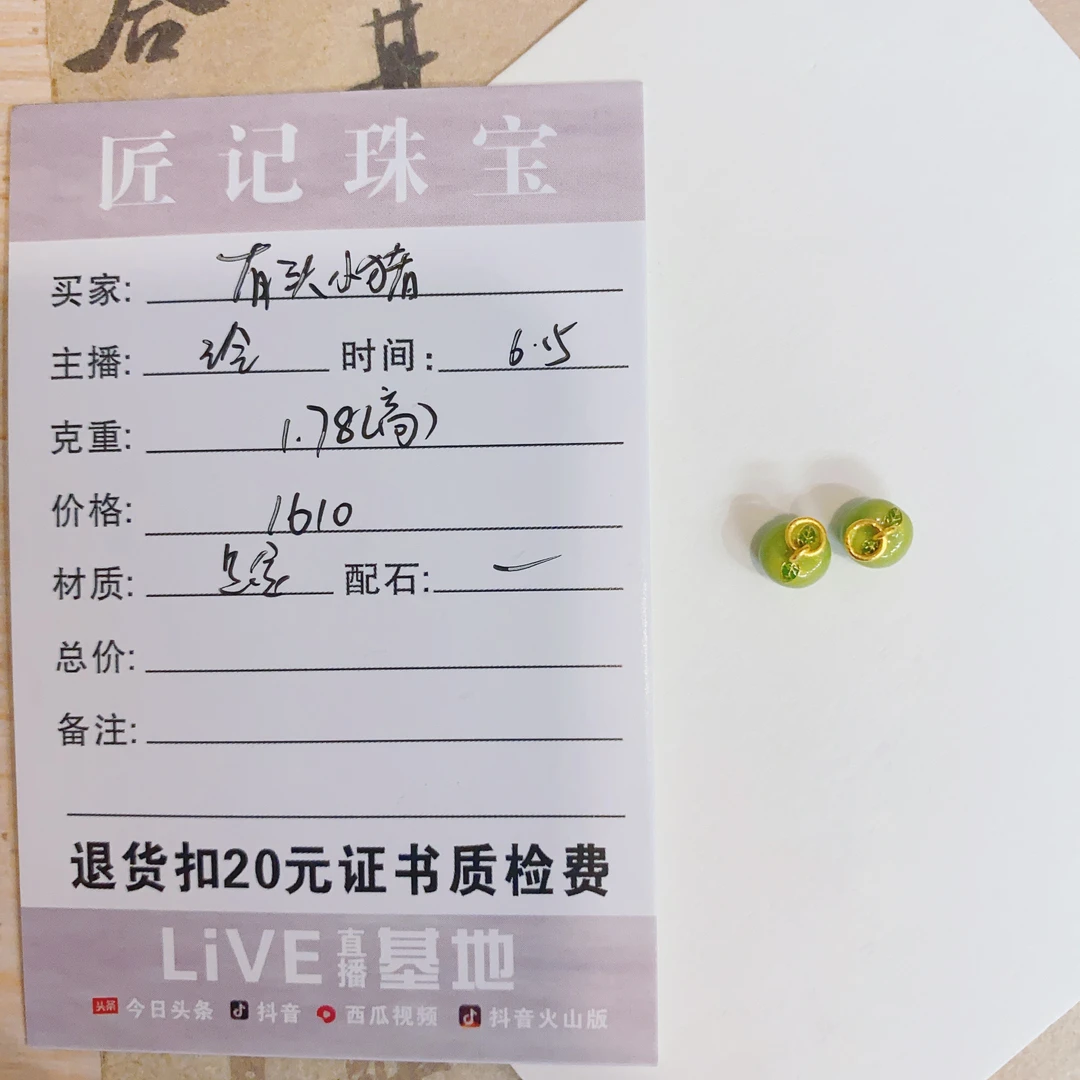 合 其
匠记珠宝
买家: 有头小猪
主播: 玲 时间: 6.15
克重: 1.78(高)
价格: 1610
材质: 配石: 一
总价:
备注:
退货扣20元证书质检费
LiVE 直播 基地
头条 今日头条 抖音 西瓜视频 抖音火山版